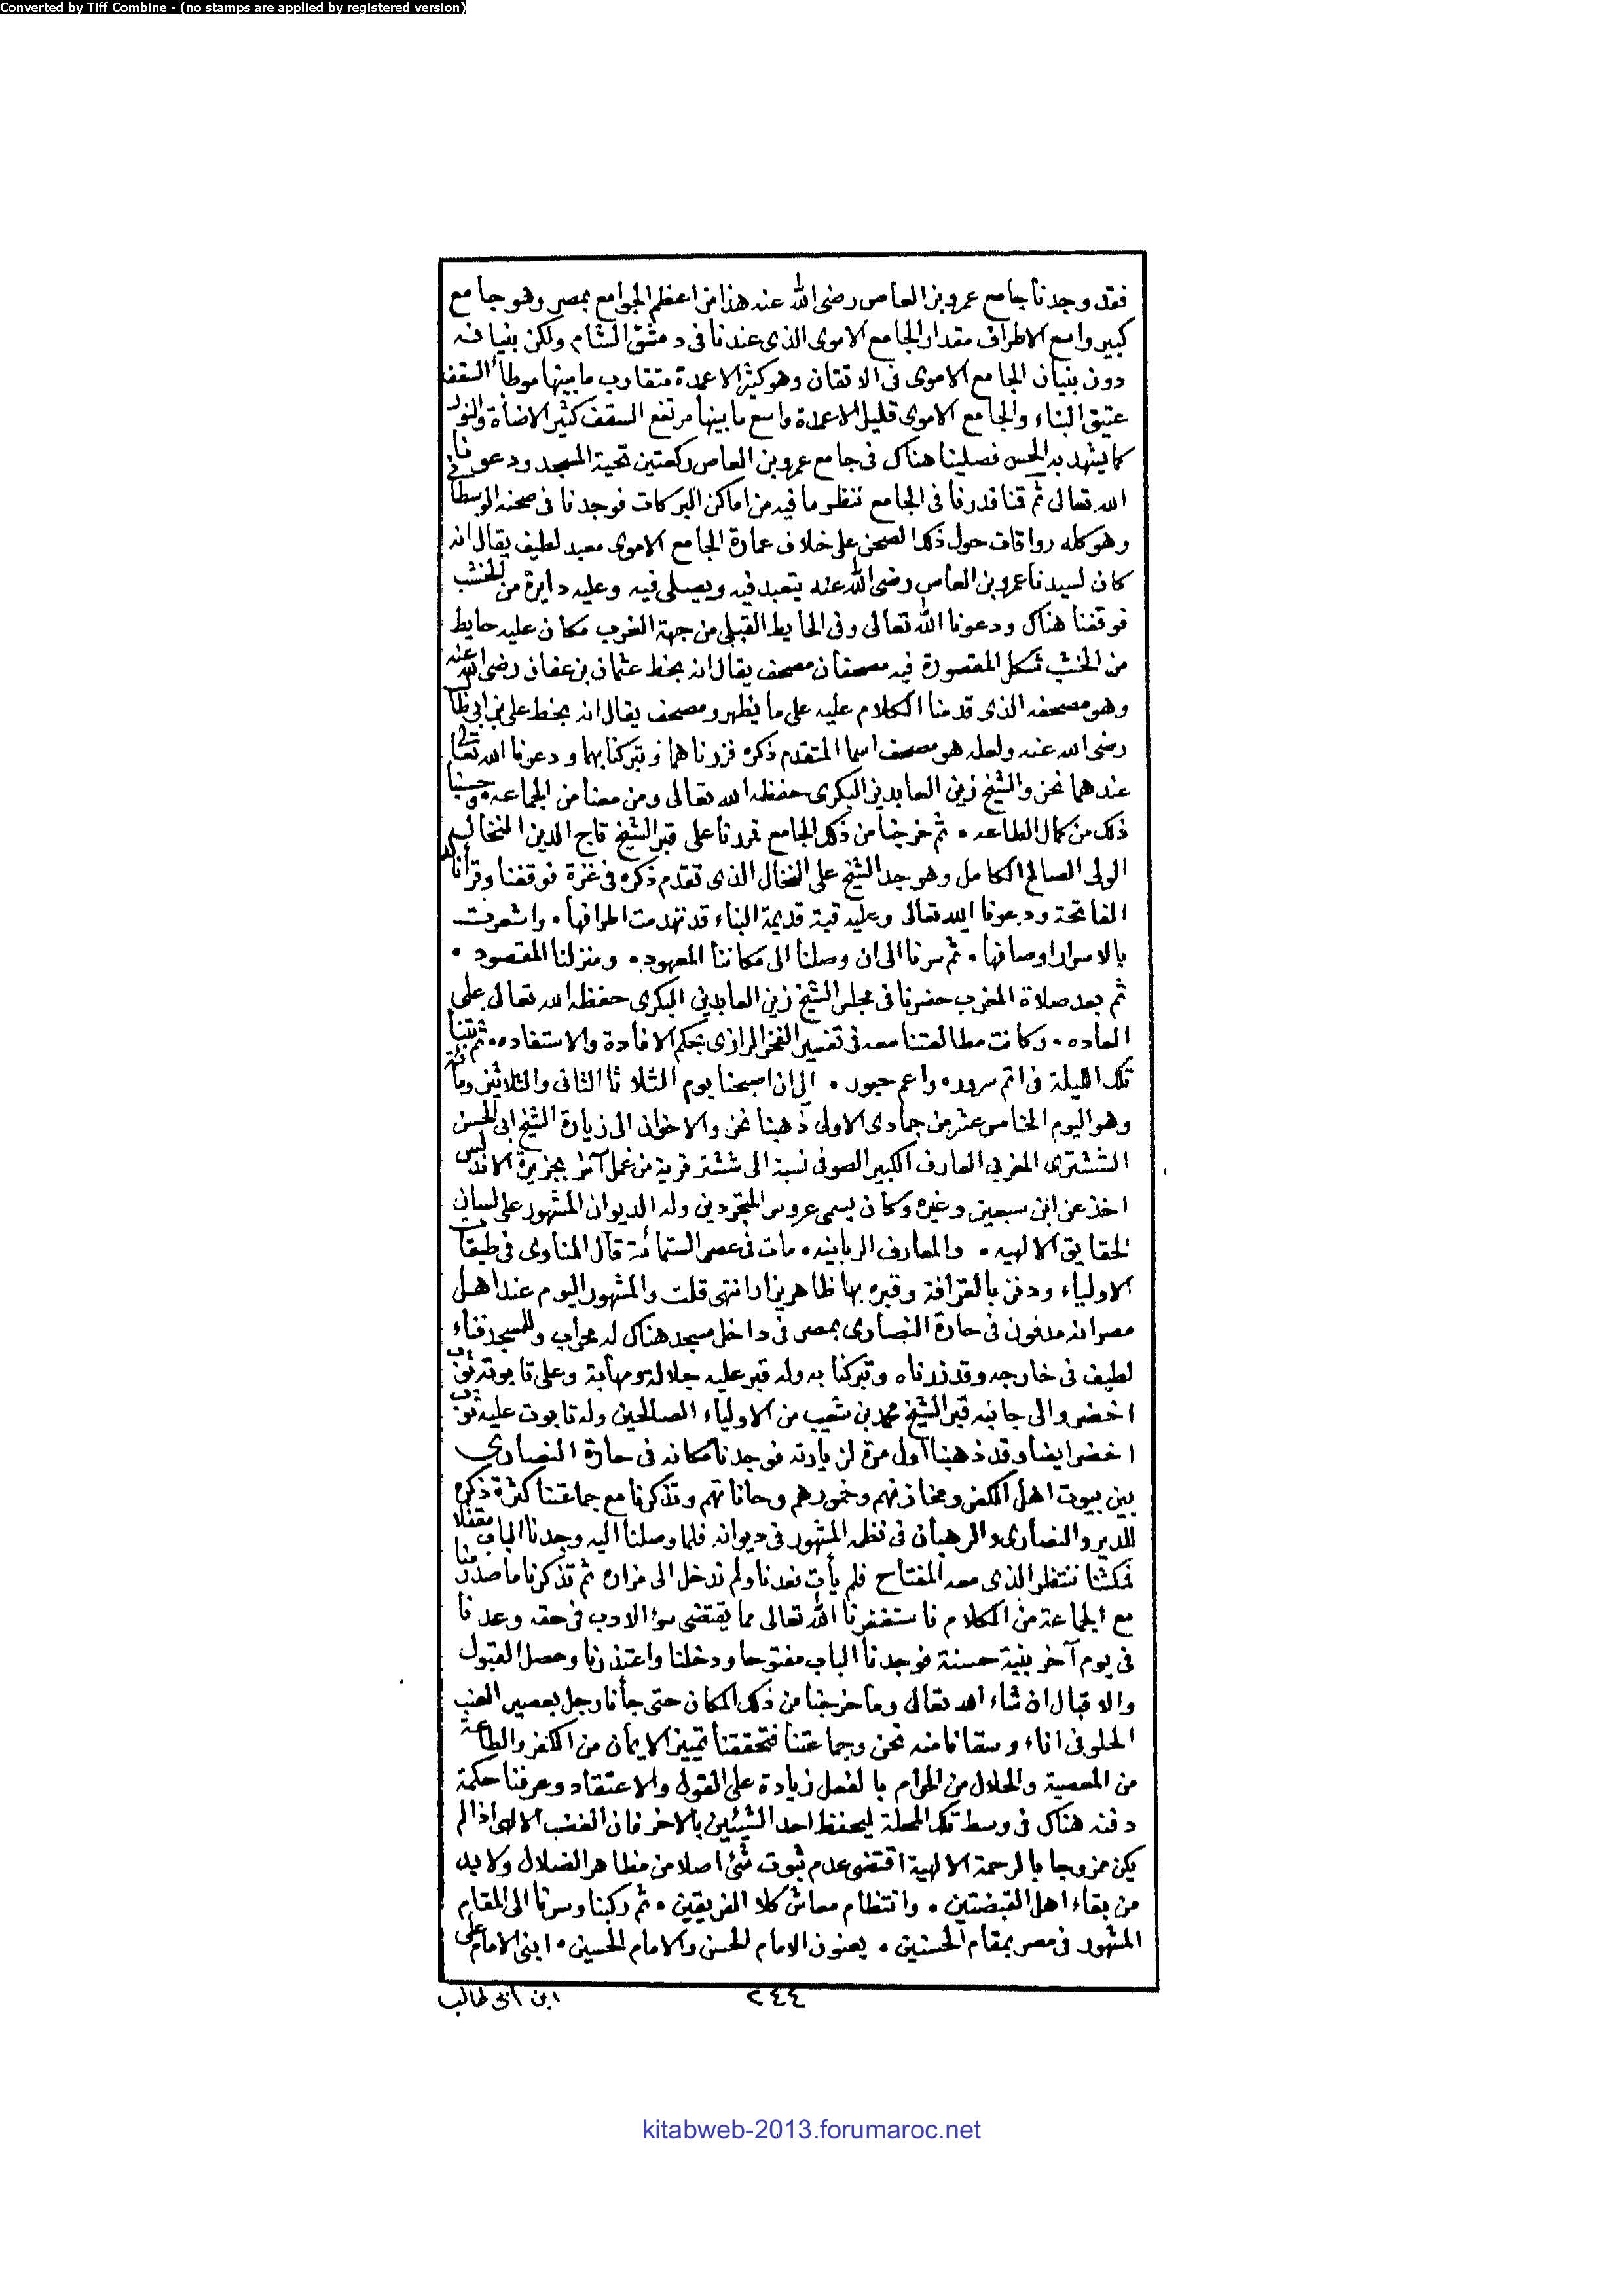 Converted by Tiff Combine - (no stamps are applied by registered version)
فقد وجدنا جامع عمرو بن العاص رضى الله عنه هذا من اعظم الجوامع بمصر وهو جامع
كبير واسع الاطراف مقدار الجامع الاموى الذى عندنا فى دمشق الشام ولكن بنيانه
دون بنيان الجامع الاموى فى الاتقان وهو كثير الاعمدة متقارب ما بينها موطأ السقف
عتيق البناء والجامع الاموى قليل الاعمدة واسع ما بينها مرتفع السقف كثير الاضأة والنور
كما يشهد به الحس فصلينا هناك فى جامع عمرو بن العاص ركعتين تحية المسجد ودعونا
الله تعالى ثم قنا فدرنا فى الجامع ننظر ما فيه من اماكن البركات فوجدنا فى صحنه الوسطا فى
وهو كله رواقات حول ذلك الصحن على خلاف عمارة الجامع الاموى معبد لطيف يقال انه
كان لسيدنا عمرو بن العاص رضى الله عنه يتعبد فيه ويصلى فيه وعليه دايرة من الخشب
فوقفنا هناك ودعونا الله تعالى وفى الحايط القبلى من جهة الغرب مكان عليه حايط
من الخشب شكل المقصورة فيه مصحفان مصحف يقال انه بخط عثمان بن عفان رضى الله عنه
وهو مصحفه الذى قدمنا الكلام عليه على ما يظهر ومصحف يقال انه بخط على بن ابى طا
رضى الله عنه ولعله هو مصحف اسما المتقدم ذكره فزرناهما وتبركنا بهما ودعونا الله تعالى
عندهما نحن والشيخ زين العابدين البكرى حفظه الله تعالى ومن معنا من الجماعه وحسبنا
ذلك من كمال الطاعه ٠ ثم خرجنا من ذلك الجامع فمررنا على قبر الشيخ تاج الدين النخال
الولى الصالح الكامل وهو جد الشيخ على النخال الذى تقدم ذكره فى غزة فوقفنا وقرأنا
الفاتحة ودعونا الله تعالى وعليه قبة قديمة البناء قد تهدمت اطرافها ٠ واشعرت
بالاسرار اوصافها ٠ ثم سرنا الى ان وصلنا الى مكاننا المعهود ٠ ومنزلنا المقصود ٠
ثم بعد صلاة المغرب حضرنا فى مجلس الشيخ زين العابدين البكرى حفظه الله تعالى على
العاده ٠ وكانت مطالعتنا معه فى تفسير الفخر الرازى بحكم الافادة والاستفاده ٠ ثم بتنا
تلك الليلة فى اتم سرور ٠ واعم حبور ٠ الى ان اصبحنا يوم الثلاثا الثانى والثلاثين ومائة
وهو اليوم الخامس عشر من جمادى الاولى ذهبنا نحن والاخوان الى زيارة الشيخ ابى الحسن
الششترى المغربى العارف الكبير الصوفى نسبة الى ششتر قرية من عمل آش بجزيرة الاندلس
اخذ عن ابن سبعين وغيره وكان يسمى عروس المتجردين وله الديوان المشهور على لسان
الحقايق الالهيه ٠ والمعارف الربانيه ٠ مات فى عصر الستمائة قال المناوى فى طبقات
الاولياء ودفن بالقرافة وقبره بها ظاهر يزار انتهى قلت والمشهور اليوم عند اهل
مصر انه مدفون فى حارة النصارى بمصر فى داخل مسجد هناك له محراب وللمسجد فناء
لطيف فى خارجه وقد زرناه وتبركنا به وله قبر عليه جلالة ومهابة وعلى تابوته ثوب
اخضر والى جانبه قبر الشيخ محمد بن شعيب من الاولياء الصالحين وله تابوت عليه ثوب
اخضر ايضا وقد ذهبنا اول مرة لزيادته فوجدنا مكانه فى حارة النصارى
بين بيوت اهل الكفر ومخازنهم وخمورهم وحاناتهم وتذكرنا مع جماعتنا كثرة ذكره
للدير والنصارى والرهبان فى نظمه المشهور فى ديوانه فلما وصلنا اليه وجدنا الباب مقفلا
فمكثنا ننتظر الذى معه المفتاح فلم يأت فعدنا ولم ندخل الى مزاره ثم تذكرنا ما صدر منا
مع الجماعة من الكلام فاستغفرنا الله تعالى مما يقتضى سؤ الادب فى حقه وعدنا
فى يوم آخر بنية حسنة فوجدنا الباب مفتوحا ودخلنا واعتذرنا وحصل القبول
والاقبال ان شاء الله تعالى وما خرجنا من ذلك المكان حتى جأنا رجل بعصير العنب
الحلو فى اناء وسقانا منه نحن وجماعتنا فتحققنا تمييز الايمان من الكفر والطاعة
من المعصية والحلال من الحرام بالفعل زيادة على القول والاعتقاد وعرفنا حكمة
دفنه هناك فى وسط تلك المحلة ليحفظ احد الشيئين بالاخر فان الغضب الالهى اذا لم
يكن ممزوجا بالرحمة الالهية اقتضى عدم ثبوت شئ اصلا من مظاهر الضلال ولا بد
من بقاء اهل القبضتين ٠ وانتظام معاش كلا الفريقين ٠ ثم ركبنا وسرنا الى المقام
المشهور فى مصر بمقام الحسنين ٠ يعنون الامام الحسن والامام الحسين ٠ ابنى الامام على
ابن أبى طالب
٢٤٤
kitabweb-2013.forumaroc.net